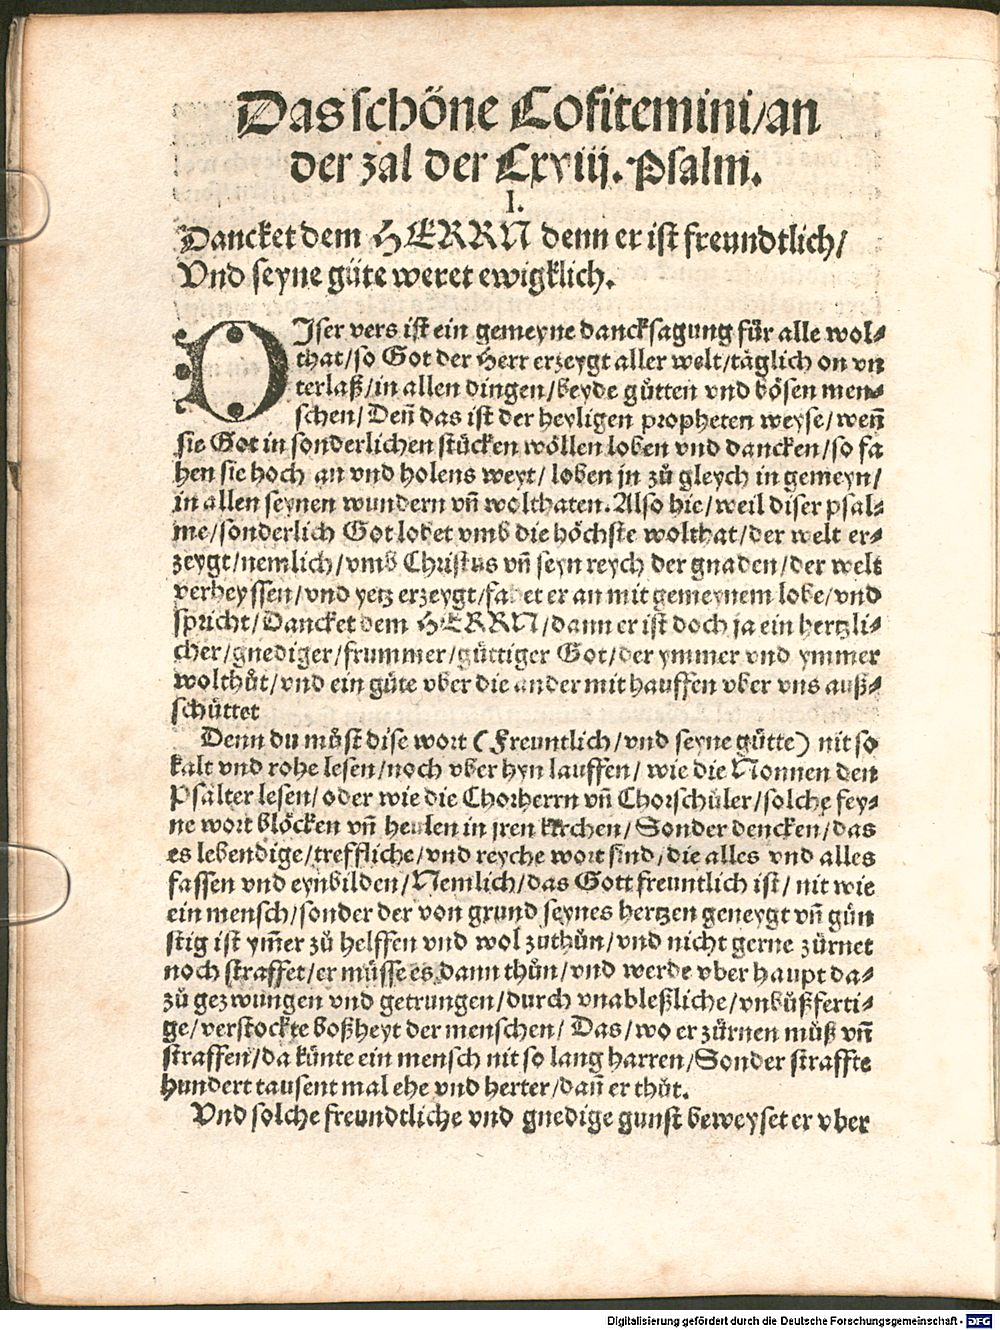 Das schöne Cofitemini/an
der zal der Cxviij. Psalm.
I.
Dancket dem HERRN denn er ist freundtlich/
Vnd seyne güte weret ewigklich.
DJser vers ist ein gemeyne dancksagung für alle wol⸗
that/so Got der Herr erzeygt aller welt/täglich on vn
terlaß/in allen dingen/beyde gütten vnd bösen men⸗
schen/Deñ das ist der heyligen propheten weyse/weñ
sie Got in sonderlichen stücken wöllen loben vnd dancken/so fa
hen sie hoch an vnd holens weyt/loben jn zů gleych in gemeyn/
in allen seynen wundern vñ wolthaten. Also hie/weil diser psal⸗
me/sonderlich Got lobet vmb die höchste wolthat/der welt er⸗
zeygt/nemlich/vmb Christus vñ seyn reych der gnaden/der welt
verheyssen/vnd yetz erzeygt/fahet er an mit gemeynem lobe/vnd
spricht/Dancket dem HERRN/dann er ist doch ja ein hertzli⸗
cher/gnediger/frummer/güttiger Got/der ymmer vnd ymmer
wolthůt/vnd ein güte vber die ander mit hauffen vber vns auß⸗
schüttet
Denn du můst dise wort (Freuntlich/vnd seyne gütte) nit so
kalt vnd rohe lesen/noch vber hyn lauffen/wie die Nonnen den
Psalter lesen/oder wie die Chorherrn vñ Chorschüler/solche fey⸗
ne wort blöcken vñ heulen in jren kirchen/Sonder dencken/das
es lebendige/treffliche/vnd reyche wort sind/die alles vnd alles
fassen vnd eynbilden/Nemlich/das Gott freuntlich ist/nit wie
ein mensch/sonder der von grund seynes hertzen geneygt vñ gün
stig ist ym̃er zů helffen vnd wol zuthůn/vnd nicht gerne zürnet
noch straffet/er müsse es dann thůn/vnd werde vber haupt da⸗
zů gezwungen vnd getrungen/durch vnableßliche/vnbüßferti⸗
ge/verstockte boßheyt der menschen/Das/wo er zürnen můß vñ
straffen/da künte ein mensch nit so lang harren/Sonder straffte
hundert tausent mal ehe vnd herter/dañ er thůt.
Vnd solche freundtliche vnd gnedige gunst beweyset er vber
Digitalisierung gefördert durch die Deutsche Forschungsgemeinschaft - DFG